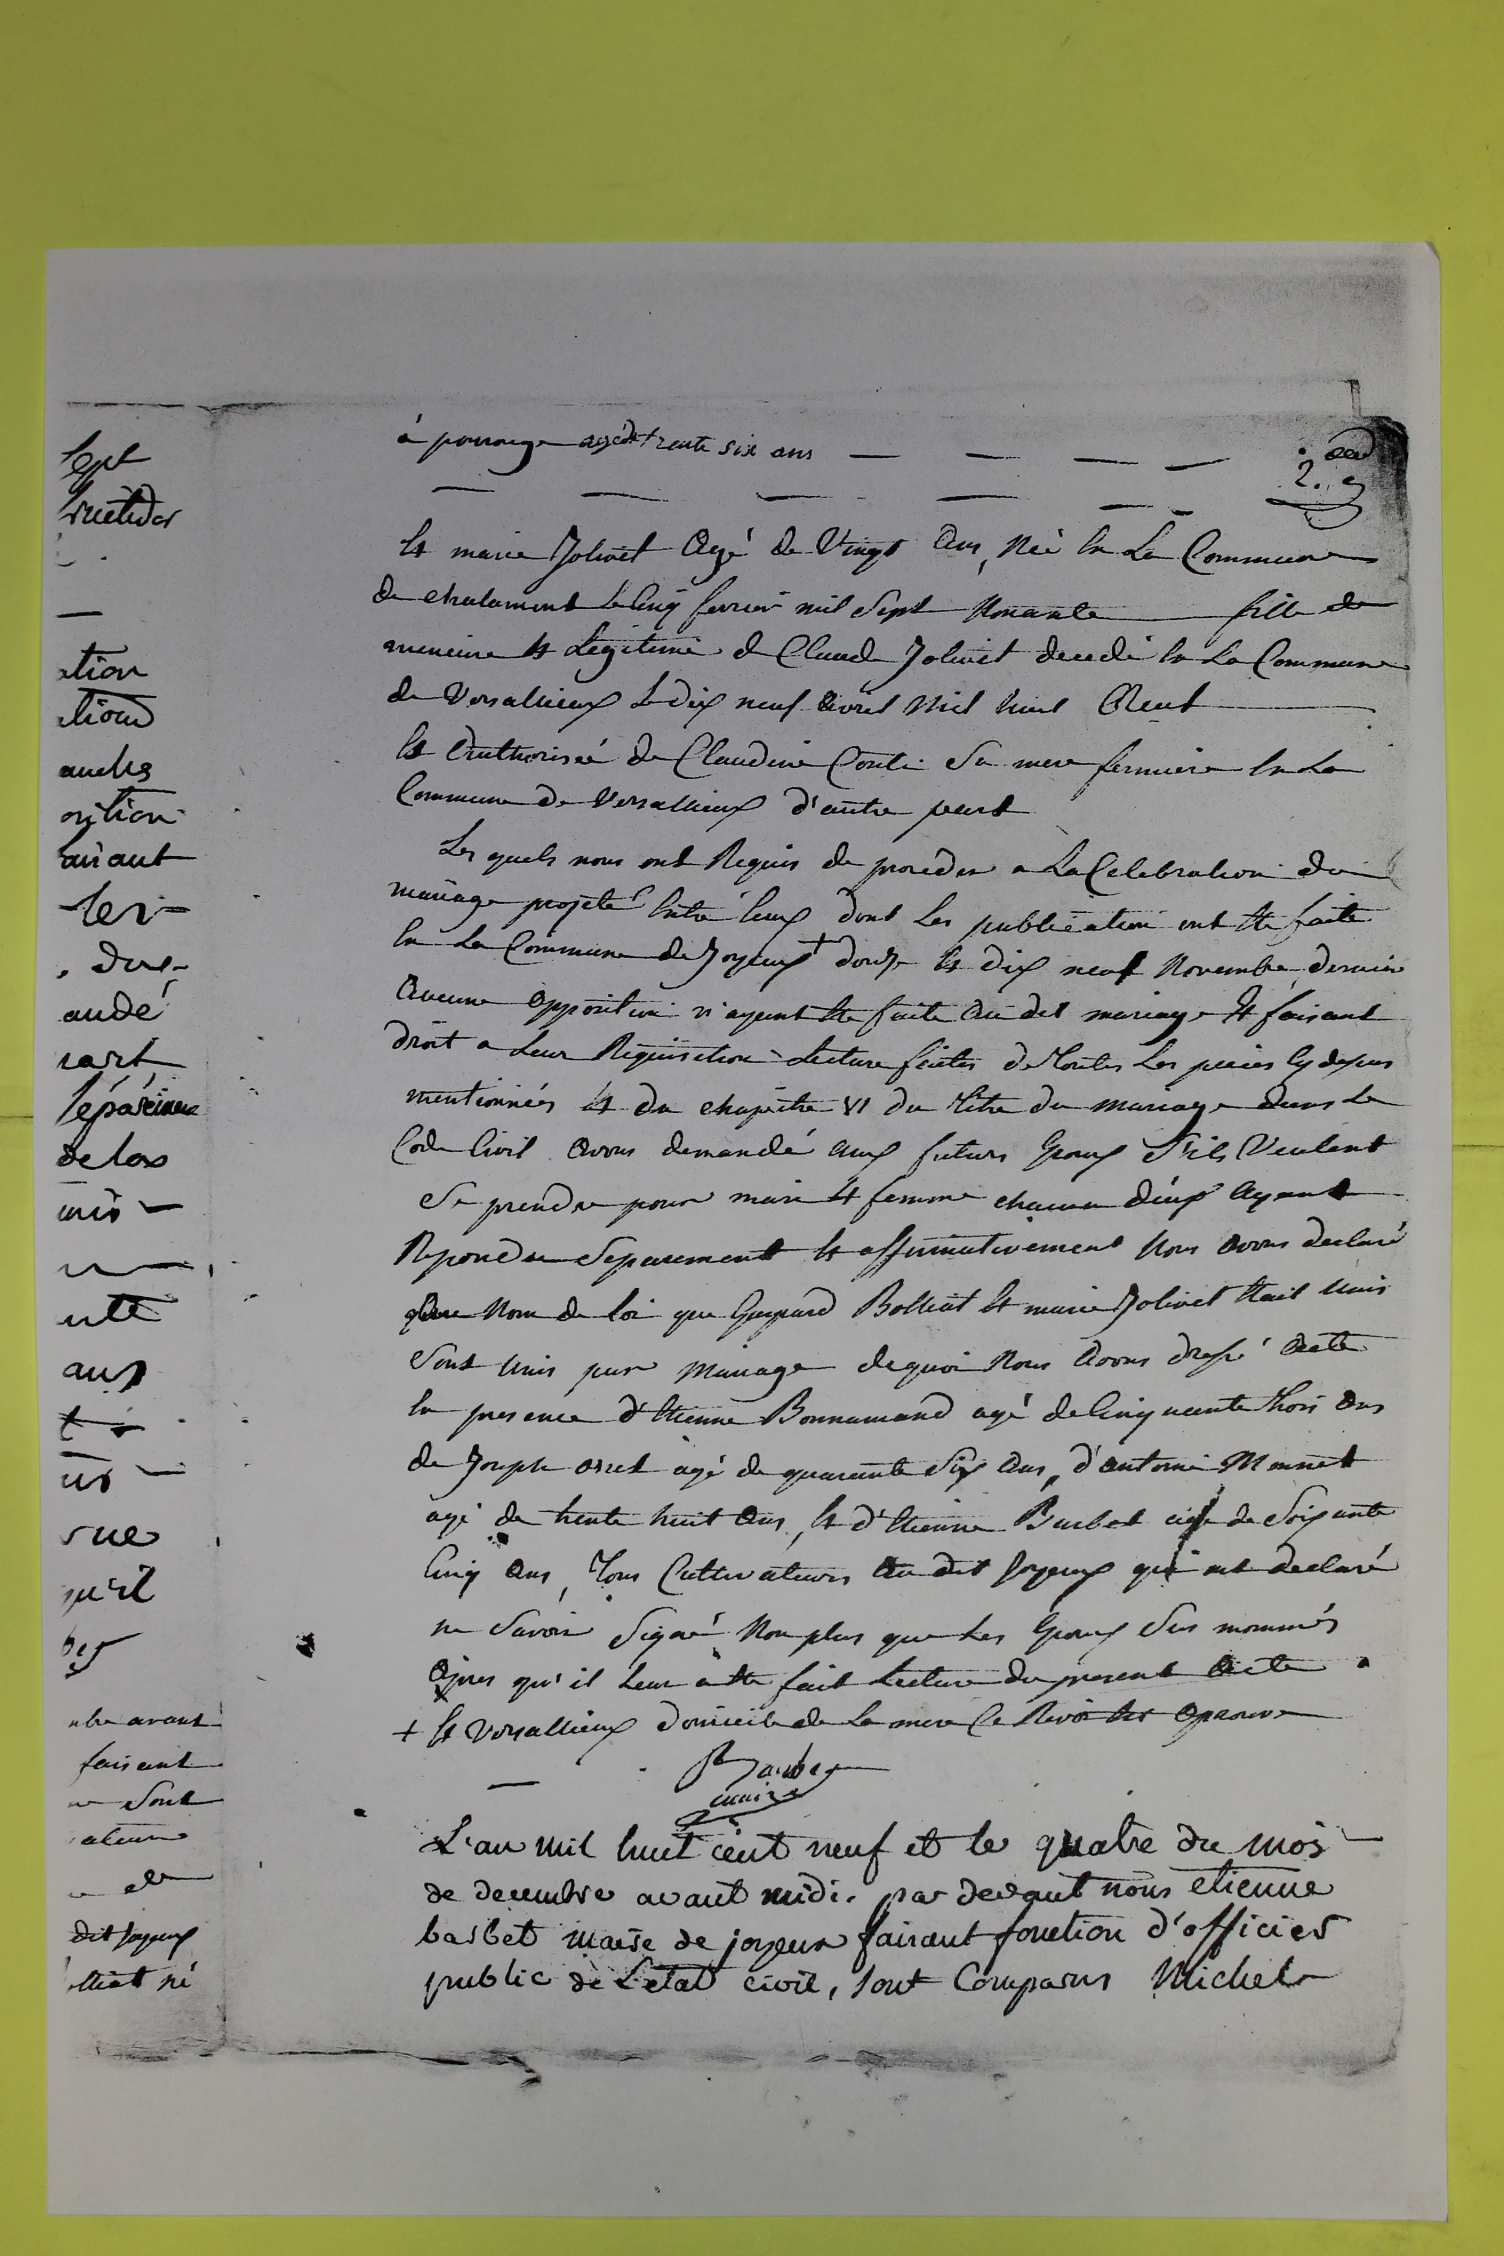 sept
ation
auche
osition
avant
ler
audé
part
séparément
de lois
unis
ente
ans
rue
qu'il
mbre avant
faisant
Sont
dit joyeux
olliat né
à agé de trente six ans
2.
Et marie Jolivet Agé de Vingt Ans, Née En La Commune
de chalamont Le Cinq fevrier mil Sept Nonante fille de
mineure Et Legitime de Claude Jolivet decedé En La Commune
de Versallieux Le Dix neuf Avril Mil huit Cent
Et Authorisée de Claudine Conte Sa mere fermiere En La
Commune de Versallieux d'autre part
Les quels nous ont Requis de proceder a La Celebration du
mariage projeté Entre Eux dont Les publication ont Ete faite
En La Commune de Joyeux + douze Et Dix neuf Novembre dernier
Aucune Opposition n'ayant Ete faite Au dit mariage Et faisant
droit a Leur Requisition Lecture faites de Toutes Les pieces Cy desus
mentionnés Et du chapitre VI du Titre du mariage dans Le
Code Civil Avons demandé aux futurs Epoux S'ils Veulent
Se prendre pour mari Et femme chacun d'eux Ayant
Repondu Separement Et affirmativement Nous Avons declaré
Au Nom de loi que Gaspard Bolliat Et marie Jolivet Etait Unis
Sont Unis par Mariage dequoi Nous Avons dresé Acte
En presence d'Etienne Bonnamand agé de Cinquante Trois Ans
de Joseph oret agé de quarante Six Ans, d'antoine Monnet
agé de trente huit Ans, Et d'Etienne Barbet agé de Soixante
Cinq Ans, Tous Cultivateurs Au dit Joyeux qui ont declaré
ne Savoir Signé Non plus que Les Epoux Sus nommés
Apres qu'il Leur a Ete fait Lecture du present Acte
+ Et Versallieux domicile de La mere Ce Renvoi Est Aprouve
Barbet
maire
L'an mil huit cent neuf et le quatre du mois
de decembre avant midi. par devant nous etienne
barbet maire de joyeux faisant fonction d'officier
public de L'etat civil, sont Comparus Michel